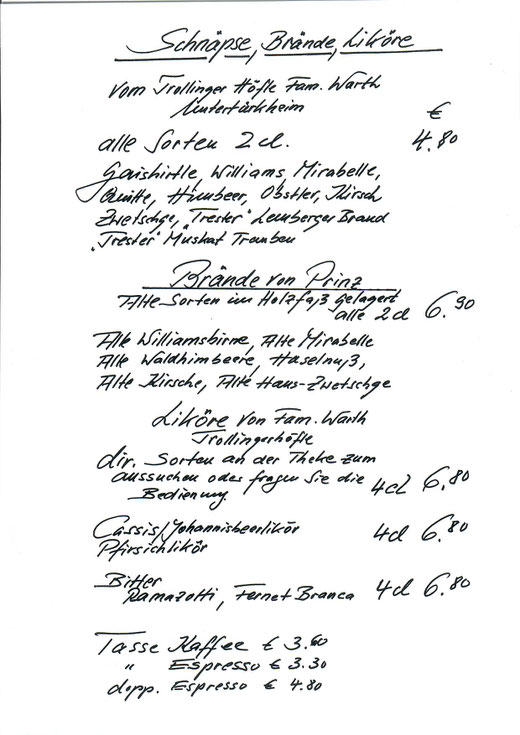 Schnäpse, Brände, Liköre
vom Trollinger Höfle Fam. Warth
Untertürkheim
€
alle Sorten 2 cl. 4.80
Gaishirtle, Williams, Mirabelle,
Quitte, Himbeer, Obstler, Kirsch
Zwetschge, "Trester" Lemberger Brand
"Trester" Muskat Trauben
Brände von Prinz
Alte Sorten im Holzfaß gelagert
alle 2 cl 6.90
Alte Williamsbirne, Alte Mirabelle
Alte Waldhimbeere, Haselnuß,
Alte Kirsche, Alte Haus-Zwetschge
Liköre von Fam. Warth
Trollingerhöfle
div. Sorten an der Theke zum
aussuchen oder fragen Sie die
Bedienung. 4 cl 6.80
Cassis/Johannisbeerlikör 4 cl 6.80
Pfirsichlikör
Bitter
Ramazotti, Fernet Branca 4 cl 6.80
Tasse Kaffee € 3.60
" Espresso € 3.30
dopp. Espresso € 4.80